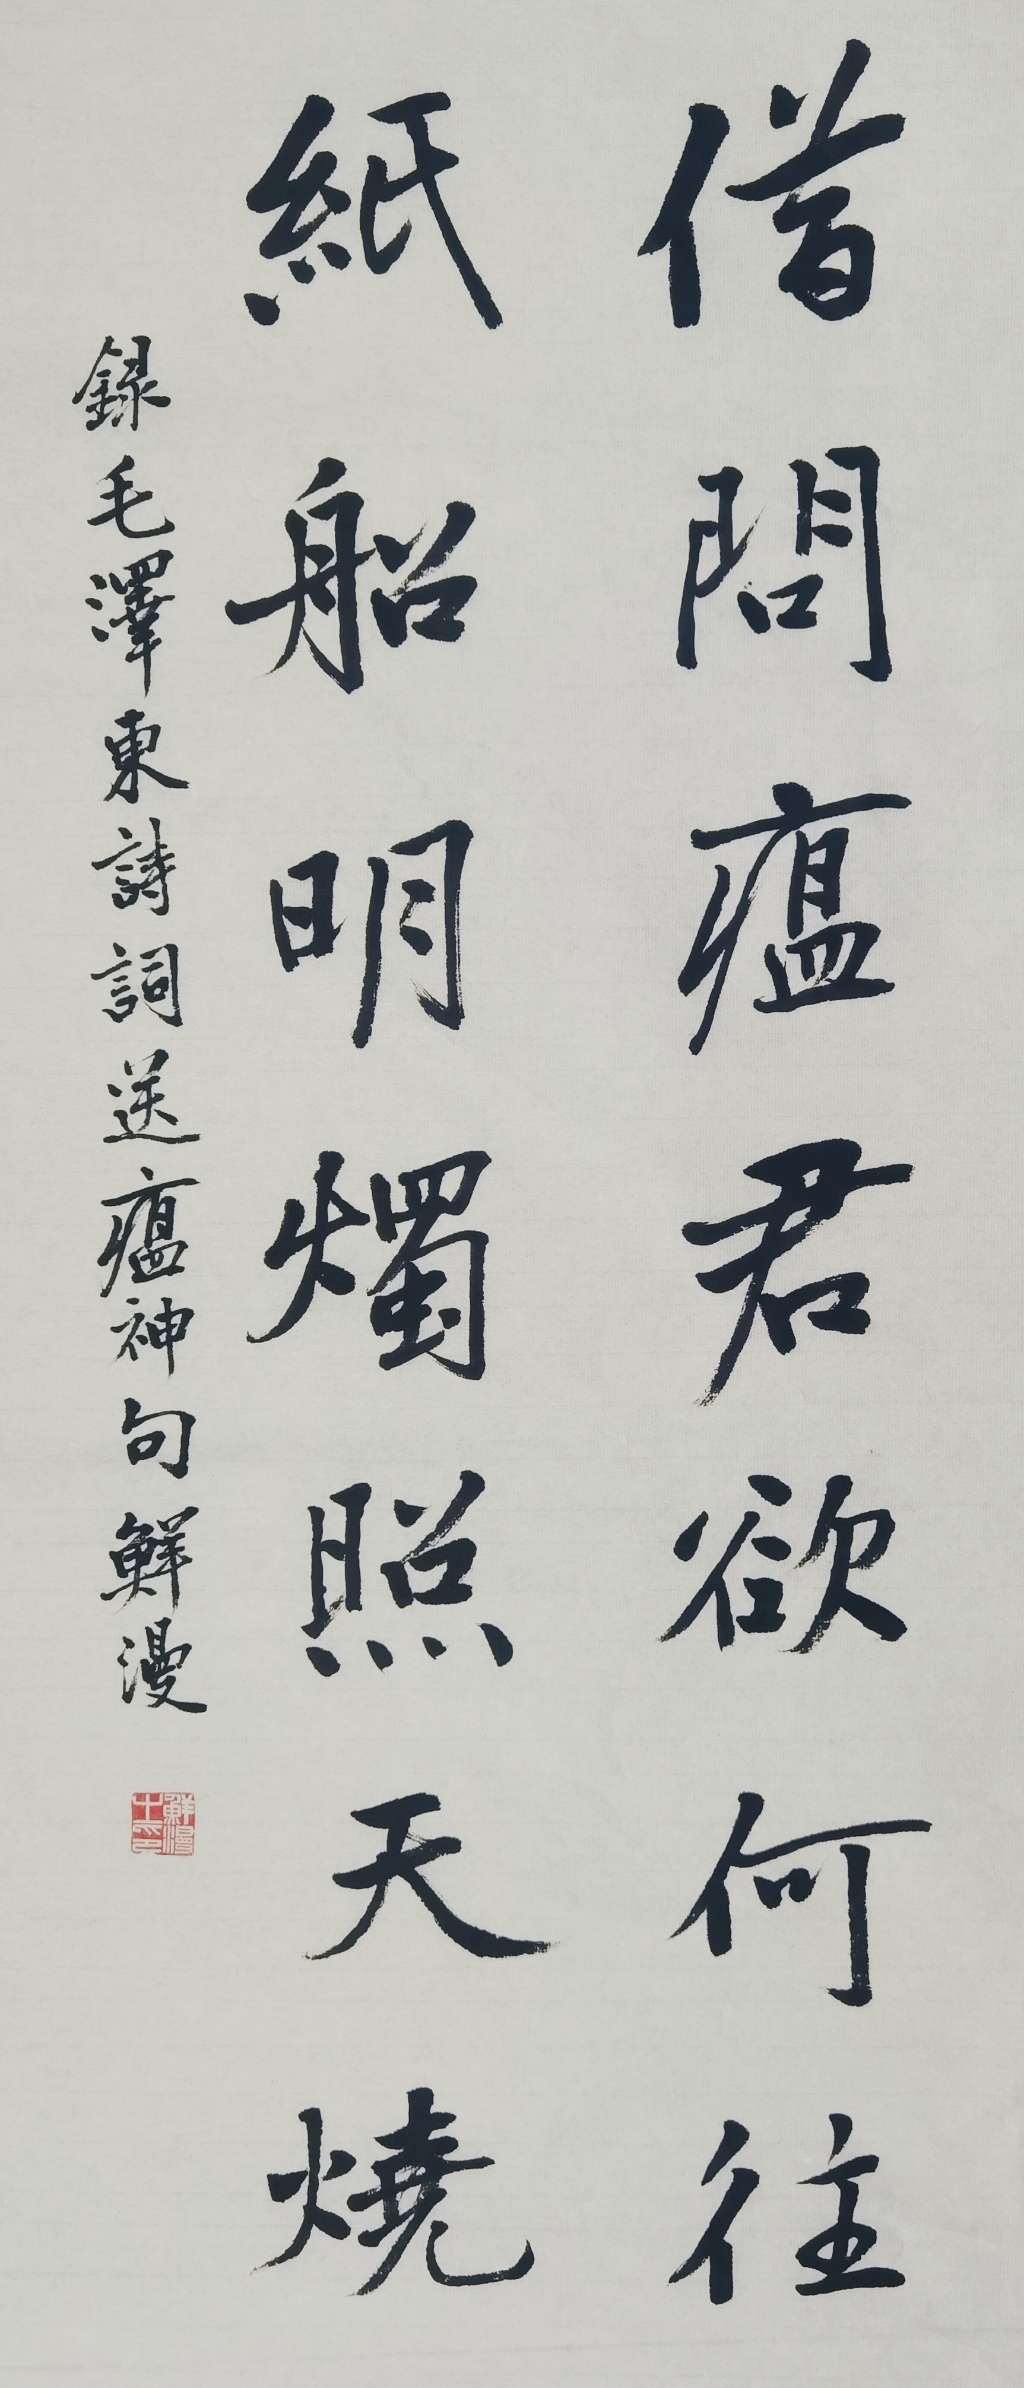 借問瘟君欲何往
紙船明燭照天燒
録毛澤東詩詞送瘟神句鮮漫
鮮漫